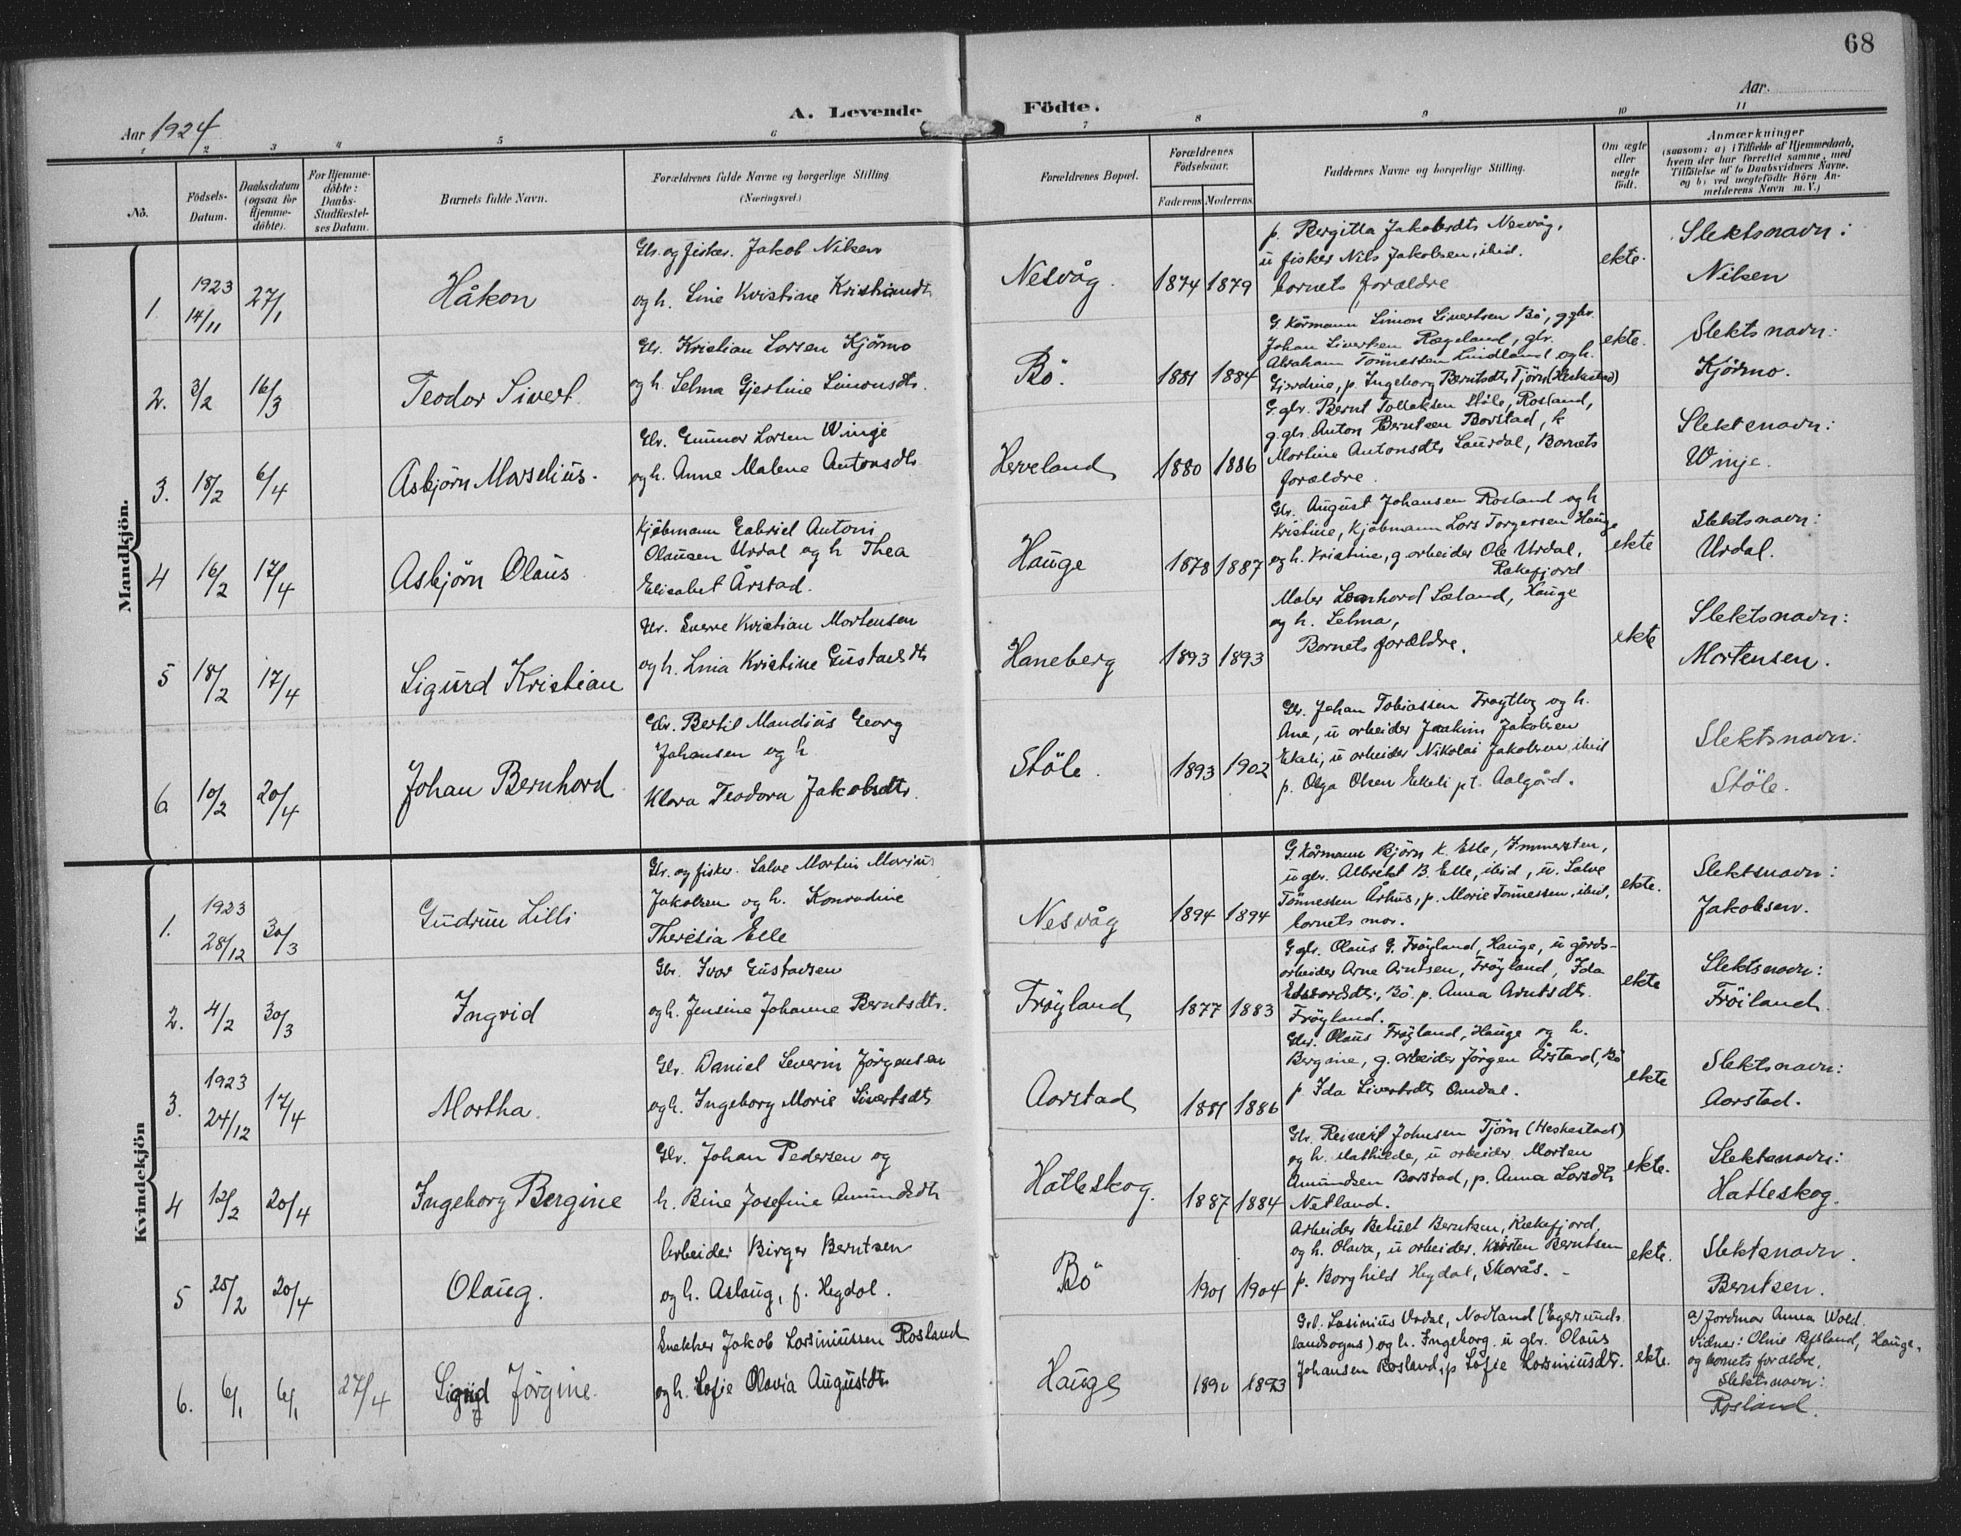 68
Aar 1924
A. Levende Födte.
Aar
1 2 3 4 5 6 7 8 9 10 11
No.
Födsels-
Datum.
Daabsdatum
(ogsaa for
Hjemme-
döbte).
For Hjemme-
döbte:
Daabs-
Stadfæstel-
ses Datum.
Barnets fulde Navn.
Forældrenes fulde Navne og borgerlige Stilling
(Næringsvei.)
Forældrenes Bopæl.
Forældrenes
Födselsaar.
Faderens Moderens
Faddernes Navne og borgerlige Stilling.
Om ægte
eller
uægte
födt.
Anmærkninger
(saasom: a) i Tilfælde af Hjemmedaab,
hvem der har forrettet samme, med
Tilföielse af to Daabsvidners Navne.
og b) ved uægtefödte Börn An-
melderens Navn m. V.)
Mandkjön.
1. 1923 14/11 27/1 Håkon
Gbr. og fisker. Jakob Nilsen
og h. Line Kristine
Nesvåg. 1874 1879
p. Bergitta Jakobsdtr Nesvåg,
u fisker Nils Jakobsen, ibid.
barnets forældre
ekte.
Slektsnavn:
Nilsen
2. 3/2 16/3 Teodor Sivert
Gbr. Kristian Larsen Kjörmo
og h. Selma Gjertine Simonsdtr.
Bö. 1881 1884
G. Kårmann Simon Sivertsen Bö, g gbr.
Johan Sivertsen Rægeland, gbr.
Abraham Tönnessen Lindland og h.
Gjerdine, p. Ingeborg Berntsdtr Tjörn (Heskestad)
ekte.
Slektsnavn:
Kjörmo.
3. 18/2 6/4 Asbjörn Marselius.
Gbr. Gunnar Larsen Winje
og h. Anne Malene Antonsdtr
Herveland 1880 1886
G. gbr. Bernt Tollaksen Stöle, Rosland,
g. gbr. Anton Berntsen Barstad, k
Martine Antonsdtr Laurdal, Barnets
forældre.
Slektsnavn:
Winje.
4 16/2 17/4 Asbjörn Olaus
Kjöbmann Gabriel Antoni
Olausen Urdal og h Thea
Elisabet Årstad.
Hauge 1878 1887
Gbr. August Johansen Rosland og h
Kristine, Kjöbmann Lars Torgersen Hauge
og h. Kristine, g. arbeider Ole Urdal,
Rækefjord
ekte
Slektsnavn:
Urdal.
5 18/2 17/4 Sigurd Kristian
Gbr. Sverre Kristian Mortensen
og h. Lina Kristine Gustavsdtr
Haneberg 1893 1893
Maler Leonhard Sæland, Hauge
og h. Selma,
Barnets forældre.
ekte
Slektsnavn:
Mortensen.
6 10/2 20/4 Johan Bernhard
Gbr. Bertil Mandius Georg
Johansen og h
Klara Teodora Jakobsdtr.
Stöle. 1893 1902
Gbr. Johan Tobiassen og h.
Ana, u arbeider Joakim Jakobsen
Eikeli, u arbeider Nikolai Jakobsen ibid
p. Olga Olsen Eikeli pt. Aalgård.
Slektsnavn:
Stöle.
Kvindekjön
1. 1923 28/12 30/3 Gudrun Lilli
Gbr. og fisker. Salve Martin Marius
Jakobsen og h. Konradine
Theresia Elle
Nesvåg 1894 1894
G. Kårmann Björn K. Elle, Immersten,
u gbr. Albrikt B. Elle, ibid, u. Salve
Tönnessen Århus, p. Marie Tönnessen, ibid,
barnets mor.
ekte.
Slektsnavn:
Jakobsen.
2. 4/2 30/3 Ingvid
Gbr. Ivar Gustavsen
og h. Jensine Johanne Berntsdtr.
Fröyland 1877 1883
G gbr. Olaus G. Fröyland, Hauge, u gårds-
arbeider Arne Arntsen, Fröyland, Ida
Bö. p. Anna Arntsdtr
Fröyland.
ekte
Slektsnavn:
Fröiland.
3. 1923 24/12 17/4 Martha.
Gbr. Daniel Severin Jörgensen
og h. Ingeborg Marie Sivertsdtr
Aarstad 1881 1886
Gbr. Olaus Fröyland, Hauge og h.
Bergine, g. arbeider Jörgen Årstad, Bö
p Ida Sivertsdtr Omdal.
ekte
Slektsnavn:
Aarstad.
4 12/2 20/4 Ingeborg Bergine
Gbr. Johan Pedersen og
h. Bine Josefine Amundsdtr
Hatleskog. 1887 1884
Gbr. Reinert Johnsen Tjörn (Heskestad)
og h. Mathilde, u arbeider. Morten
Amundsen Barstad, p. Anna Larsdtr
Netland.
ekte.
Slektsnavn:
Hatleskog.
5 25/2 20/4 Olaug.
Arbeider Birger Berntsen
og h. Aslaug, f. Hegdal.
Bö 1901 1904
Arbeider Betuel Berntsen, Rækefjord,
og h. Olava, u arbeider. Karsten Berntsen
p. Borghild Hegdal, Skarås.
ekte.
Slektsnavn.
Berntsen.
6. 6/1 6/1 27/4 Jörgine
Snekker Jakob Larsiniussen Rosland
og h. Sofie Olavia Augustdtr
Hauge 1893
Grb. Lasinius Urdal, Nodland (Egersunds
landsogns) og h. Ingeborg. u gbr. Olaus
Johansen Rosland, p Sofie Larsiniusdtr.
ekte.
a) Jordmor Anna Wold.
Vidner: Oline Rosland, Hauge,
og barnets forældre.
Slektsnavn:
Rosland.